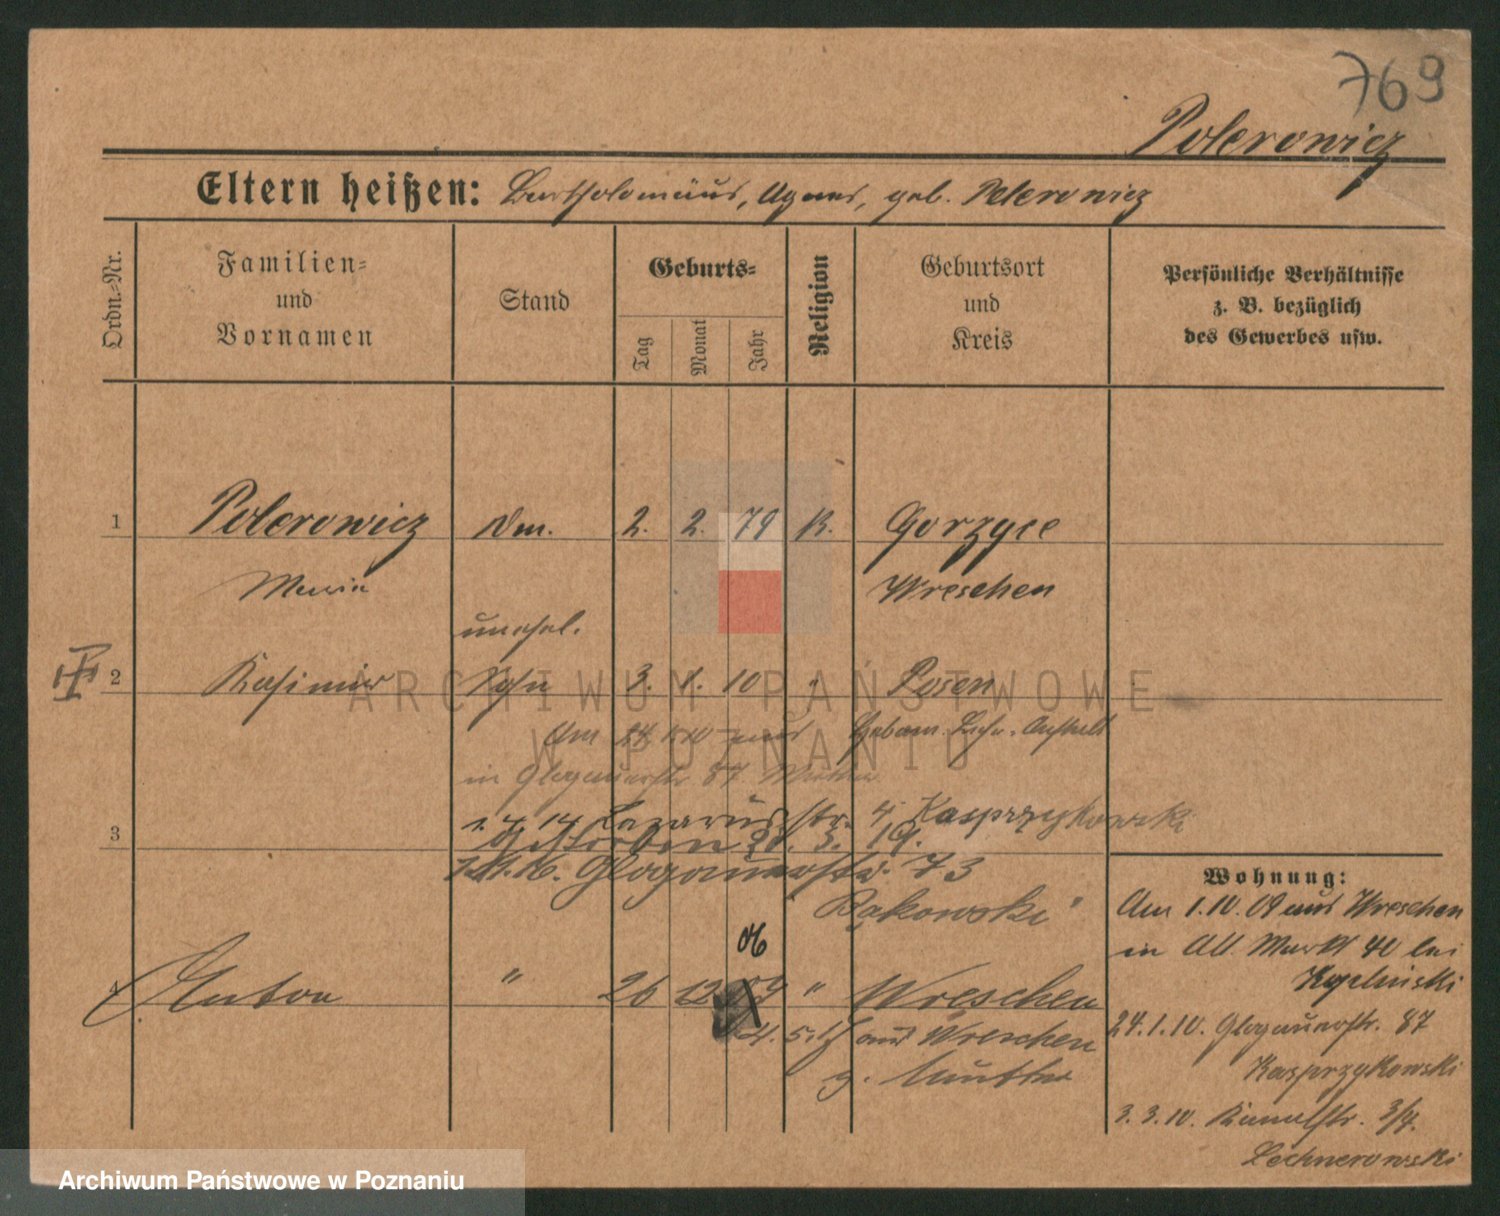 769
Polerowicz
Eltern heißen: Bartholomäus, Agnes, geb. Peterowicz
Ordn.-Nr.
Familien-
und
Vornamen
Stand
Geburts-
Tag
Monat
Jahr
Religion
Geburtsort
und
Kreis
Persönliche Verhältnisse
z. B. bezüglich
des Gewerbes usw.
1 Polerowicz 2. 2. 79 K. Gorzyce
Maria Wreschen
unehel.
2 Kasimir Sohn 3. 1. 10 " Posen
Am 24.1.10 aus Hebam. Lehr. Anstalt
in Glogauerstr. 87 Mutter
3
1. 4. 14 Lazarusstr. 4 Kasprzykowski
Gestorben 3. 19.
Glogauerstr. 73
Bąkowski
06
4 Anton " 26 12 "  Wreschen
4. 5. aus Wreschen
z. Mutter
Wohnung:
Am 1.10.09 aus Wreschen
in Alt. Markt 40 bei
24.1.10. Glogauerstr. 87
Kasprzykowski
3.3.10. Kanalstr. 3/4.
Lechnerowski
ARCHIWUM PAŃSTWOWE
W POZNANIU
Archiwum Państwowe w Poznaniu